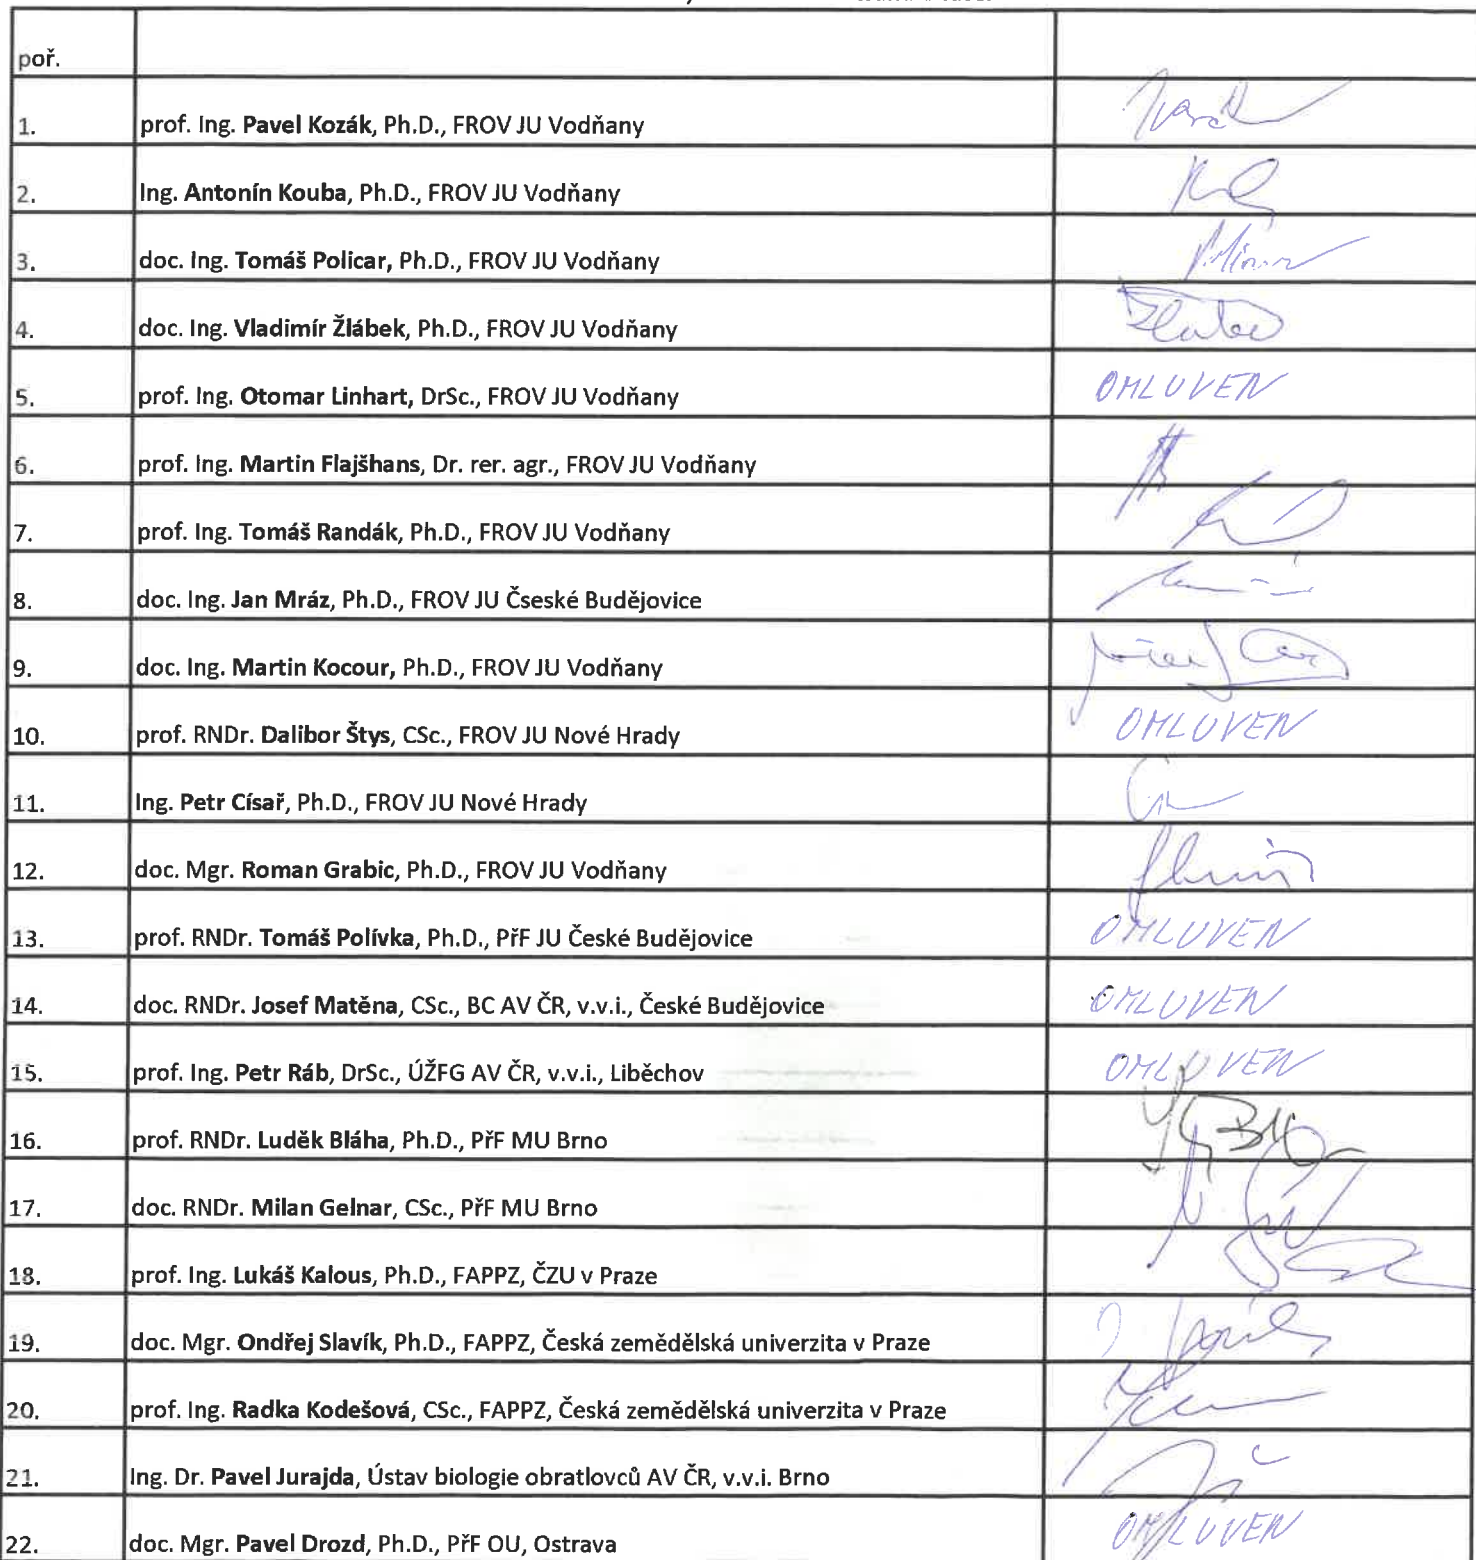 poř.
1. prof. Ing. Pavel Kozák, Ph.D., FROV JU Vodňany
2. Ing. Antonín Kouba, Ph.D., FROV JU Vodňany
3. doc. Ing. Tomáš Policar, Ph.D., FROV JU Vodňany
4. doc. Ing. Vladimír Žlábek, Ph.D., FROV JU Vodňany
5. prof. Ing. Otomar Linhart, DrSc., FROV JU Vodňany OMLUVEN
6. prof. Ing. Martin Flajšhans, Dr. rer. agr., FROV JU Vodňany
7. prof. Ing. Tomáš Randák, Ph.D., FROV JU Vodňany
8. doc. Ing. Jan Mráz, Ph.D., FROV JU Čseské Budějovice
9. doc. Ing. Martin Kocour, Ph.D., FROV JU Vodňany
10. prof. RNDr. Dalibor Štys, CSc., FROV JU Nové Hrady OMLUVEN
11. Ing. Petr Císař, Ph.D., FROV JU Nové Hrady
12. doc. Mgr. Roman Grabic, Ph.D., FROV JU Vodňany
13. prof. RNDr. Tomáš Polívka, Ph.D., PřF JU České Budějovice OMLUVEN
14. doc. RNDr. Josef Matěna, CSc., BC AV ČR, v.v.i., České Budějovice OMLUVEN
15. prof. Ing. Petr Ráb, DrSc., ÚŽFG AV ČR, v.v.i., Liběchov OMLUVEN
16. prof. RNDr. Luděk Bláha, Ph.D., PřF MU Brno
17. doc. RNDr. Milan Gelnar, CSc., PřF MU Brno
18. prof. Ing. Lukáš Kalous, Ph.D., FAPPZ, ČZU v Praze
19. doc. Mgr. Ondřej Slavík, Ph.D., FAPPZ, Česká zemědělská univerzita v Praze
20. prof. Ing. Radka Kodešová, CSc., FAPPZ, Česká zemědělská univerzita v Praze
21. Ing. Dr. Pavel Jurajda, Ústav biologie obratlovců AV ČR, v.v.i. Brno
22. doc. Mgr. Pavel Drozd, Ph.D., PřF OU, Ostrava OMLUVEN